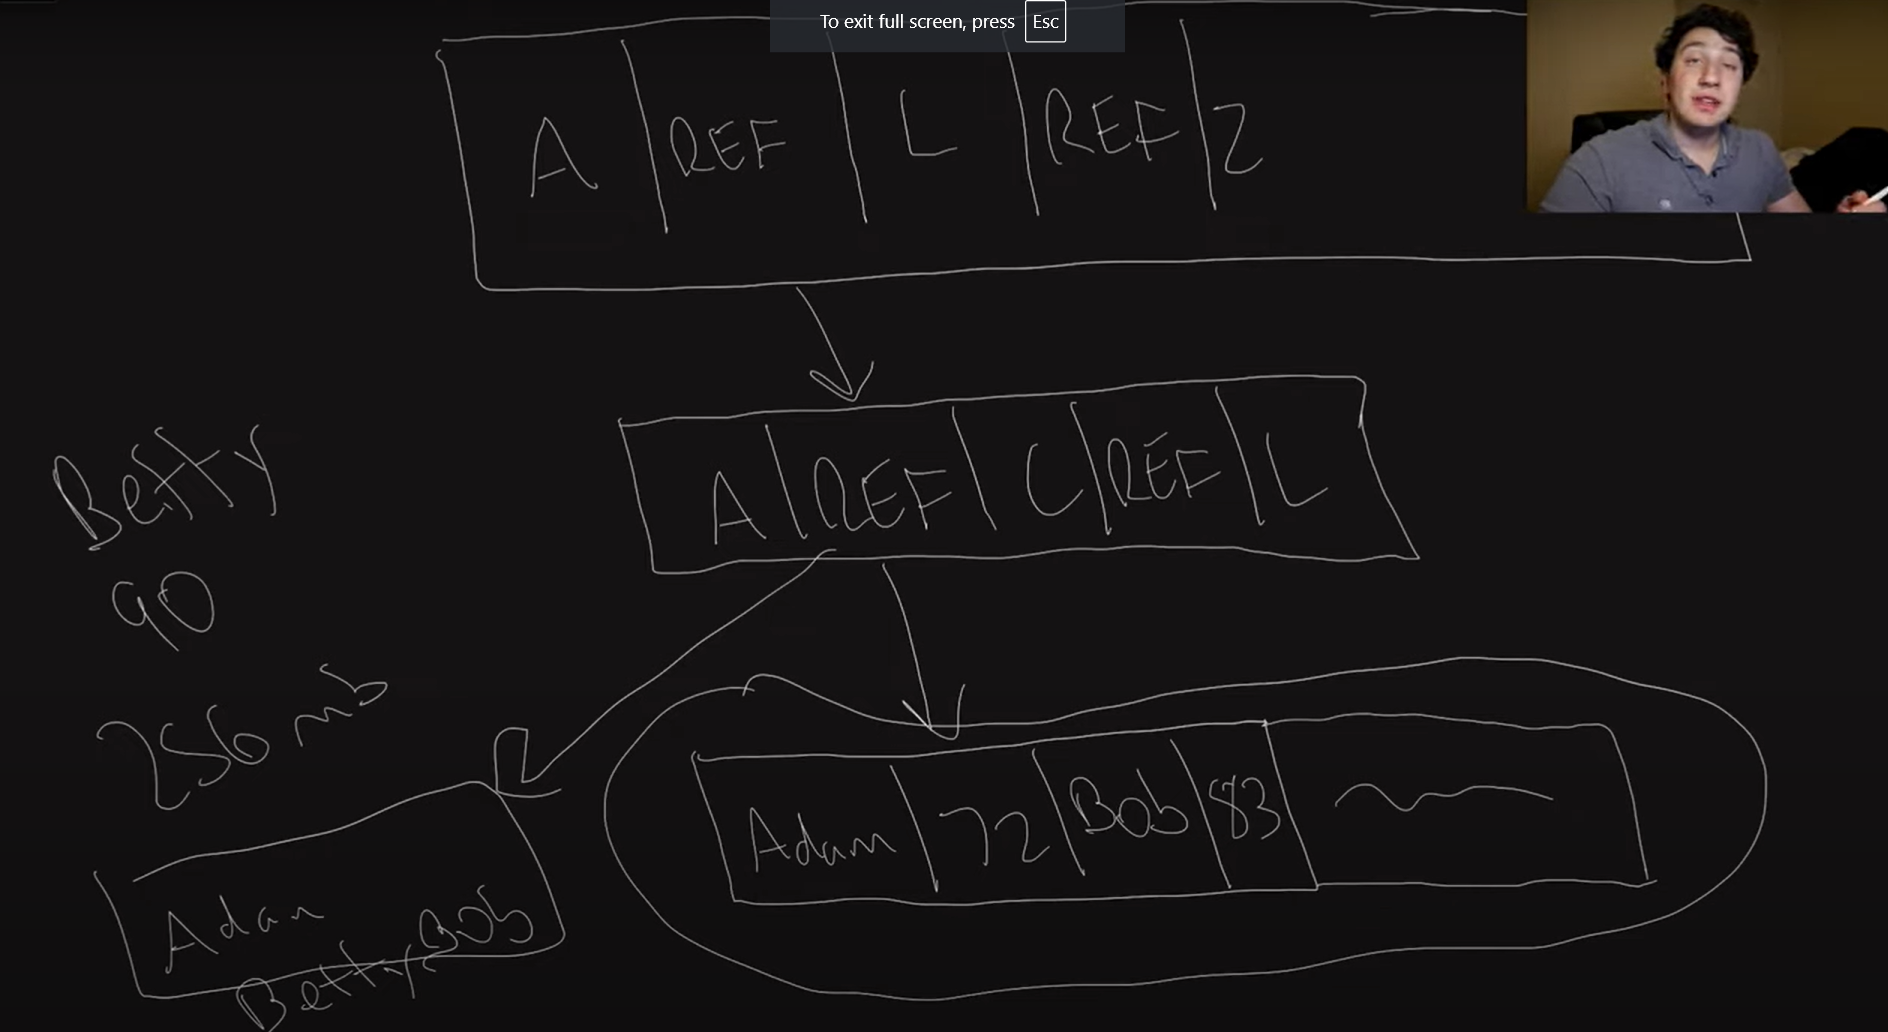 To exit full screen, press Esc
A REF L REF Z
A REF C REF L
Betty
90
256 mb
Adam 72 Bob 83
Adam
Betty Bob